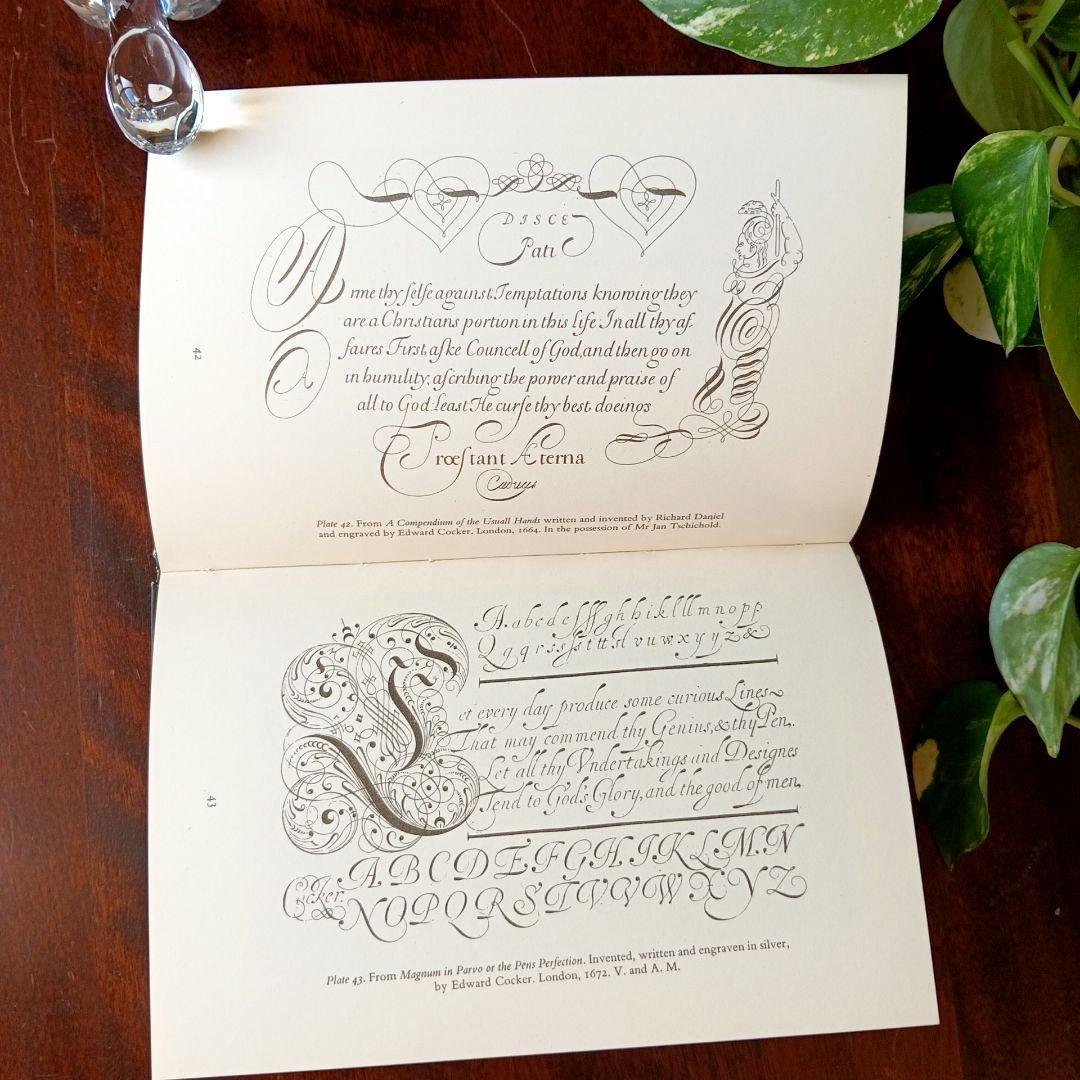 42
DISCE
Pati
Arme thy ſelfe against Temptations knowing they
are a Christians portion in this life In all thy af-
faires First aſke Councell of God, and then go on
in humility, aſcribing the power and praise of
all to God: least He curſe thy best doeings
A
Prœſtant Æterna
Caducis
Plate 42. From A Compendium of the Usuall Hands written and invented by Richard Daniel
and engraved by Edward Cocker. London, 1664. In the possession of Mr Jan Tschichold.
43
A. a b c d e f ſſ g h h i k l ll m n o p p
Q q q r s s ſs t tt ſt v u w x y y z &
Let every day produce some curious Lines
That may commend thy Genius, & thy Pen.
Let all thy Vndertakings and Designes
Tend to God's Glory, and the good of men.
A B C D E F G H I K L M N
Cocker
N O P Q R S T V V W X Y Z
Plate 43. From Magnum in Parvo or the Pens Perfection. Invented, written and engraven in silver,
by Edward Cocker. London, 1672. V. and A. M.